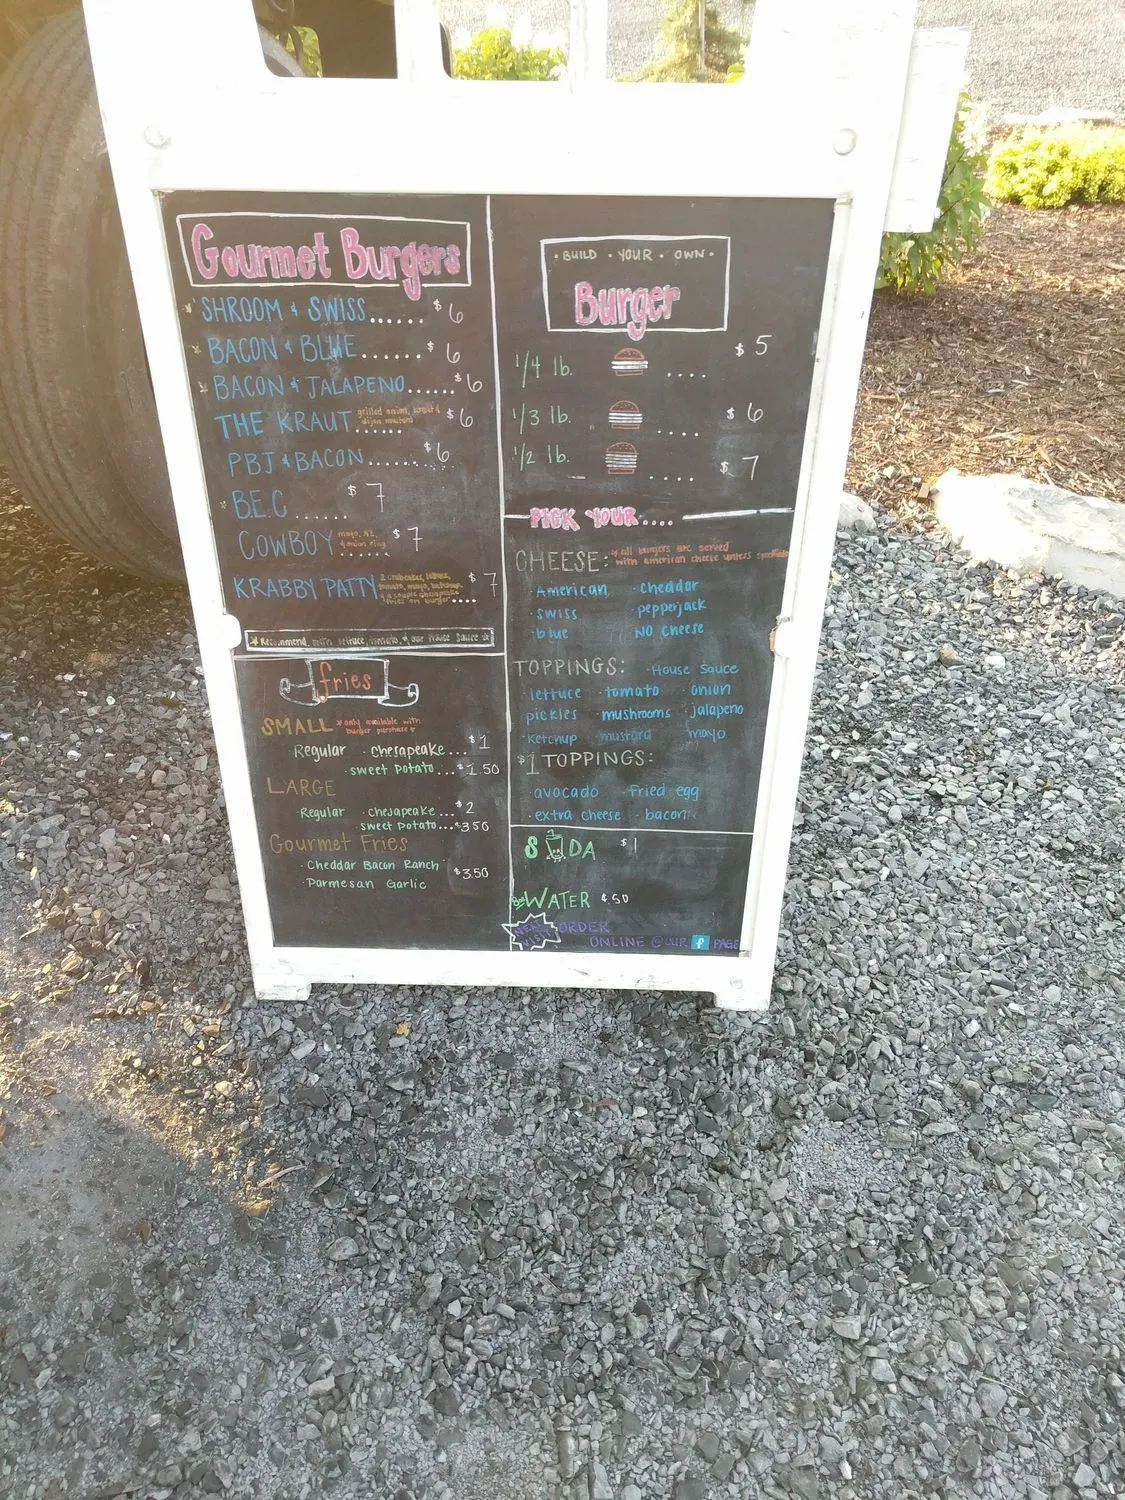 Gourmet Burgers
SHROOM & SWISS...... $6
BACON & BLUE....... $6
BACON & JALAPENO...... $6
THE KRAUT grilled onion,
dijon mustard ...... $6
PBJ & BACON ....... $6
B.E.C ...... $7
COWBOY mayo,
& onion ring ...... $7
KRABBY PATTY 2 crabcakes, lettuce,
tomato, mayo, ketchup,
chesapeake
fries on burger .... $7
* Recommend with lettuce, tomato, & our House Sauce *
fries
SMALL *only available with
burger purchase*
Regular · chesapeake... $1
· sweet potato... $1.50
LARGE
· Regular · chesapeake... $2
sweet potato... $3.50
Gourmet Fries
· Cheddar Bacon Ranch
· Parmesan Garlic $3.50
· BUILD · YOUR · OWN ·
Burger
1/4 lb. .... $5
1/3 lb. .... $6
1/2 lb. .... $7
PICK YOUR....
CHEESE: * all burgers are served
with american cheese unless specified
· American · cheddar
· swiss · pepperjack
· blue NO cheese
TOPPINGS: · House Sauce
lettuce · tomato · onion
pickles · mushrooms · jalapeno
ketchup mustard mayo
$1 TOPPINGS:
· avocado · Fried egg
· extra cheese · bacon
SODA $1
WATER $.50
ORDER
ONLINE @ OUR f PAGE